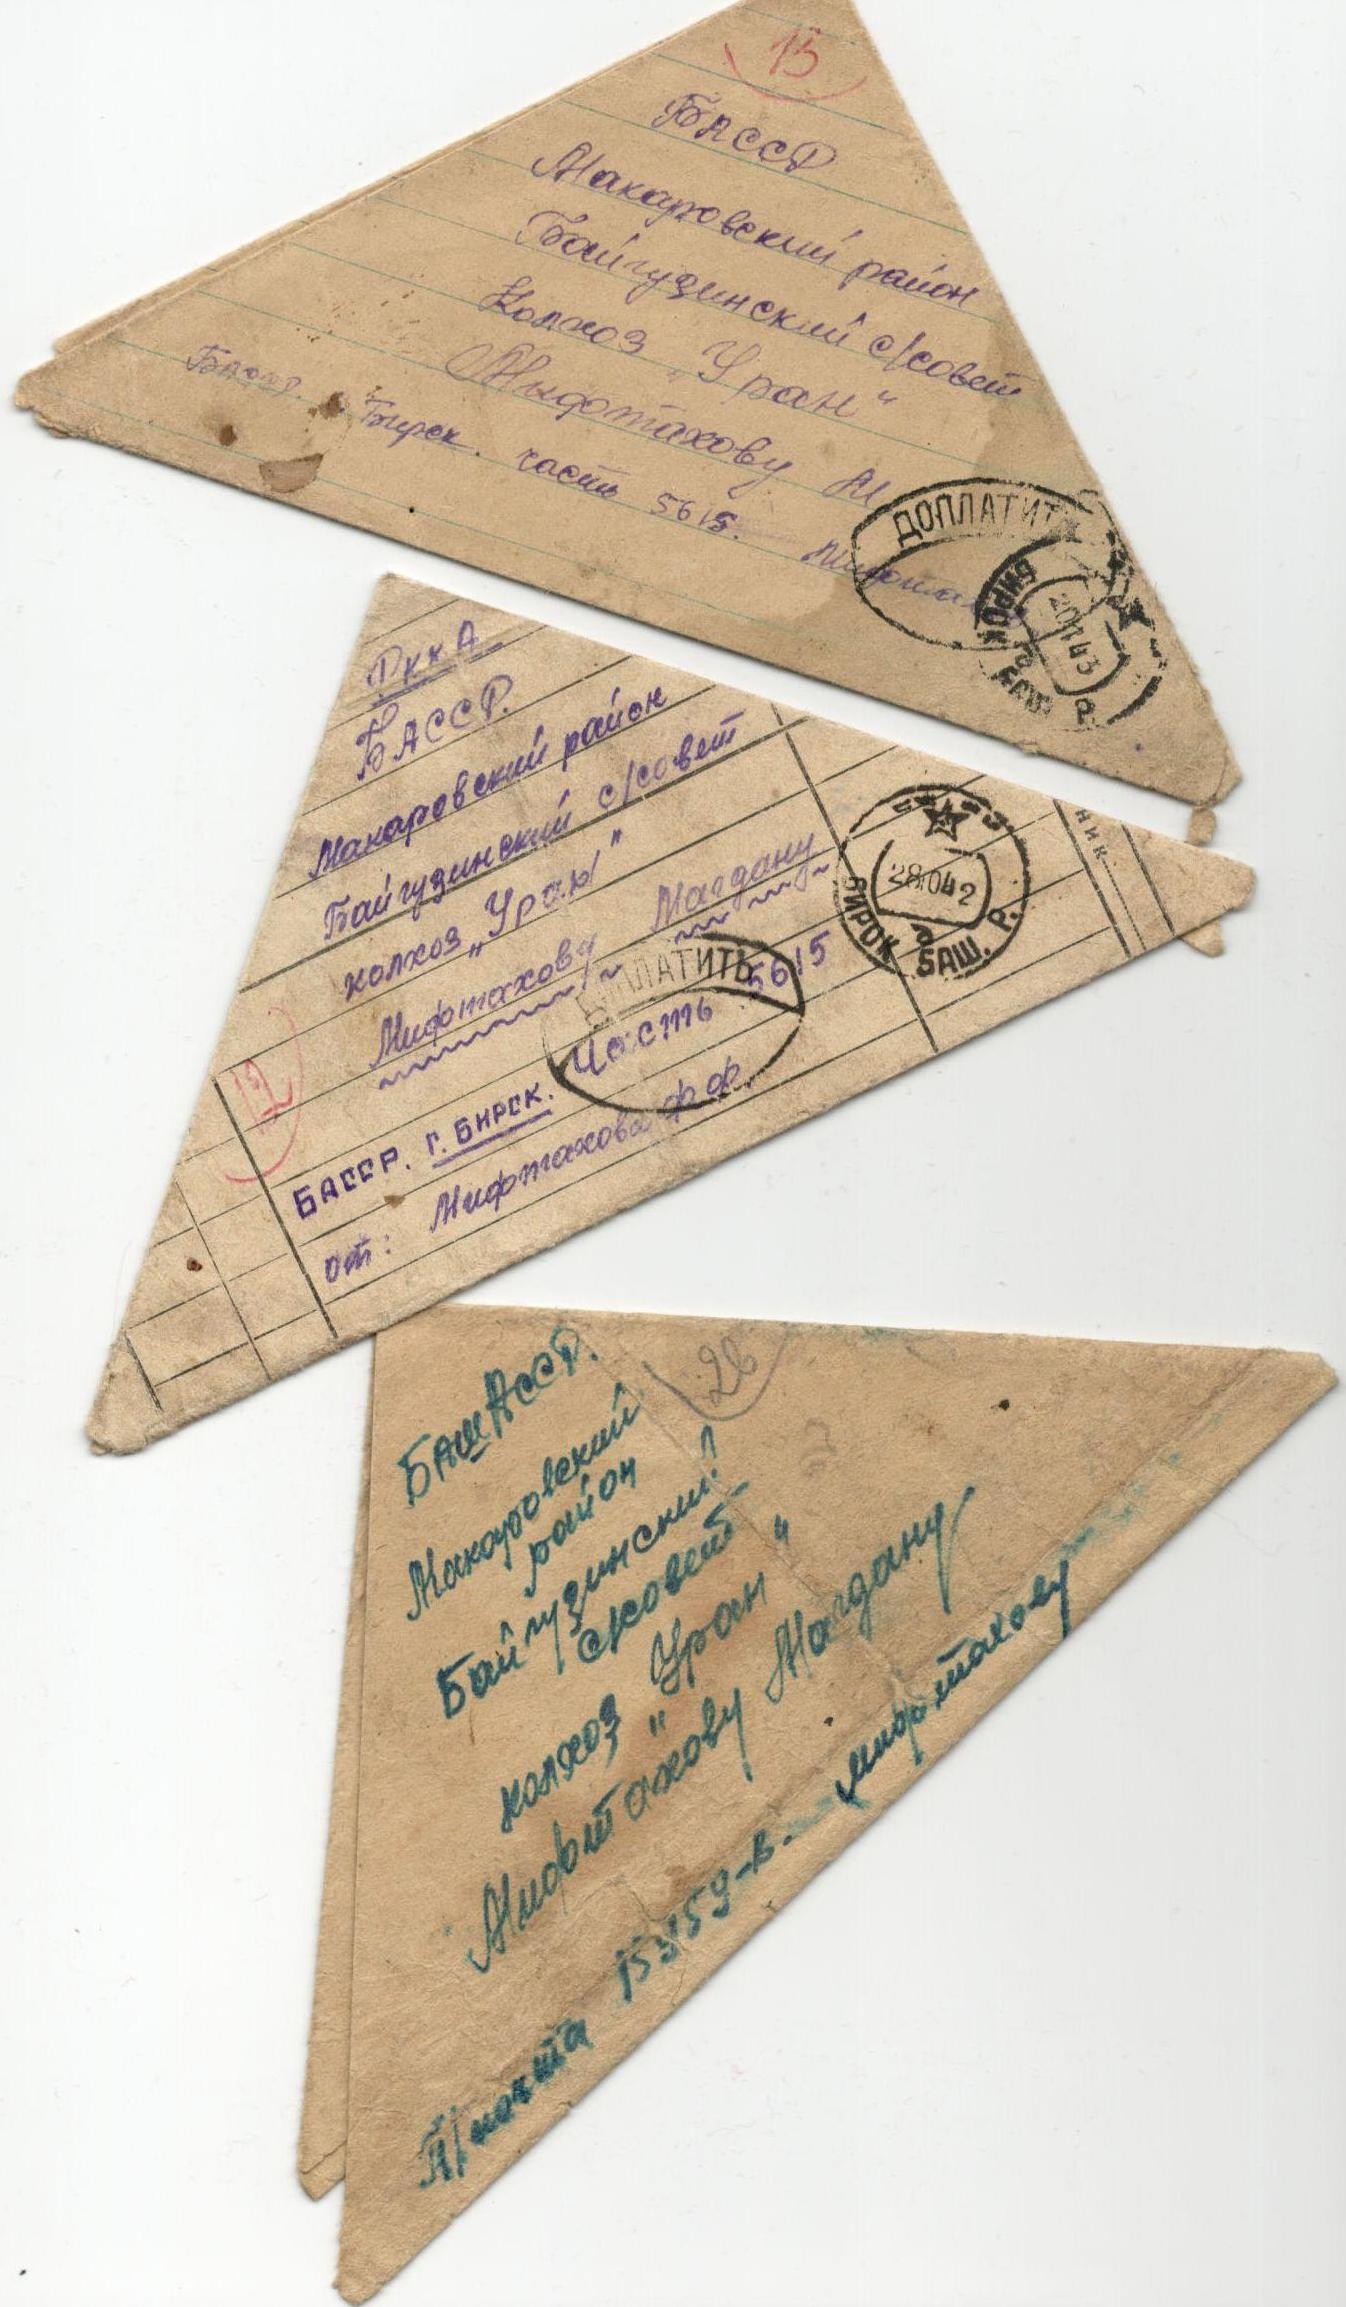 13
БАССР
Макаровский район
Байгузинский с/совет
Колхоз "Уран"
Мифтахову М
БАССР
Бирск. часть 5615.
ДОПЛАТИТЬ
БИРСК
БАШ. Р.
РККА
БАССР.
Макаровский район
Байгузинский с/совет
колхоз „Уран"
Мифтахову Магдану
12
БАССР. г. БИРСК. Часть 5615
от: Мифтахова Ф Ф.
ДОПЛАТИТЬ
28 04 2
БИРСК БАШ. Р.
НИК.
26
БАШАССР.
Макаровский
район
Байгузинский
с/совет
колхоз „Уран"
Мифтахову Магдану
П/почта 15359-в. Мифтахову